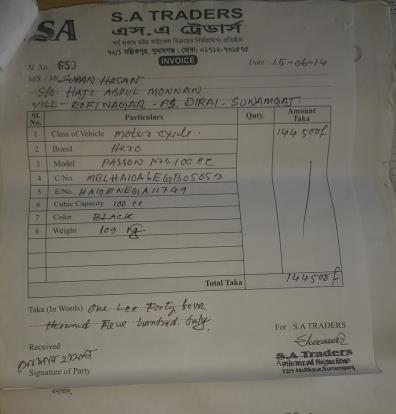 SA
S.A TRADERS
এস এ ট্রেডার্স
সর্ব প্রকার মটর সাইকেল বিক্রয়ের নির্ভরযোগ্য প্রতিষ্ঠান
৭২/১ মল্লিকপুর, সুনামগঞ্জ। মোবাঃ ০১৭১২-৭০১৫৭৫
INVOICE
Sl No. 659
Date : 15-06-14
M/S. Mr. SUMAN HASAN
S/O HAJI ABDUL MONNAN
VILL- ROFINAGAR - PS, DIRAI - SUNAMGAT.
Sl. No. Particulars Qnty. Amount Taka
1 Class of Vehicle motor cycle. 144500/-
2 Brand Hero
3 Model PASSON PRO 100 cc
4 C/No. MBLHA10A6EGB05053
5 E/No. HA10ENEGA11749
6 Cubic Capacity 100 cc
7 Color BLACK
8 Weight 109 Kg
Total Taka 144500/-
Taka (In Words) One Lac Forty four
thousand five hundred only.
Received
Signature of Party
For : S.A TRADERS
S.A Traders
72/1 Mollikpur, Sunamganj
ধন্যবাদ,